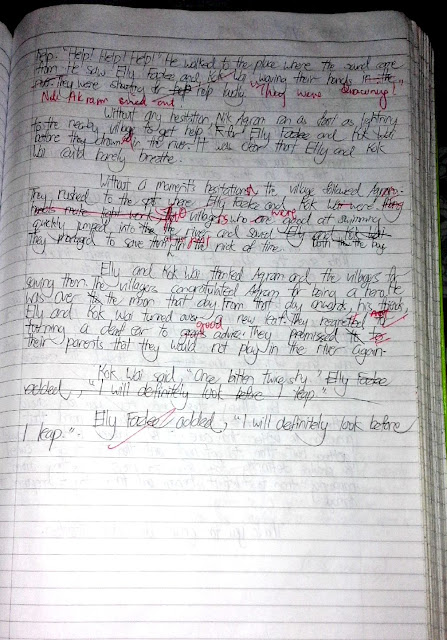 help. "Help! Help! Help!" He walked to the place where the sound came
from. He saw Elly Fadee and Kok Wai waving their hands in the
They were shouting for help loudly. They were drowning!
Nik Akram cried out
Without any hesitation, Nik Agram ran as fast as lightning
to the nearby village to get help for Elly Fadee and Kok Wai
before they drowned in the river. It was clear that Elly and Kok
Wai could barely breathe.
Without a moment's hesitation, the village followed Agram.
They rushed to the spot where Elly Fadee and Kok Wai were. Many
hands make light work. The villagers who were good at swimming
quickly jumped into the river and saved Elly and Kok Wai
they managed to save them in the nick of time. both the boy
Elly and Kok Wai thanked Agram and the villagers for
saving them. The villagers congratulated Agram for being a hero. He
was over the moon that day. From that day onwards,
Elly and Kok Wai turned over a new leaf. they regretted for not
turning a deaf ear to good advice. They promised to
their parents that they would not play in the river again.
Kok Wai said, "One bitten twice shy." Elly Fadee
added, "I will definitely look before I leap."
Elly Fadee added, "I will definitely look before
I leap.".